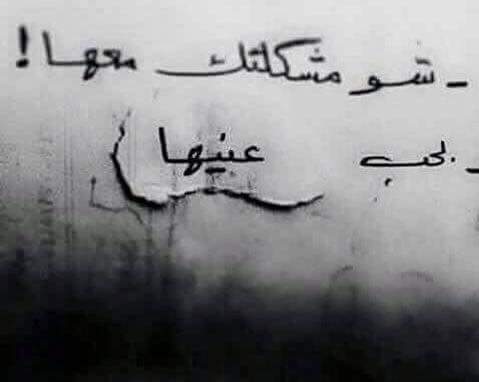 - شو مشكلتك معها !
- بحب عنيها